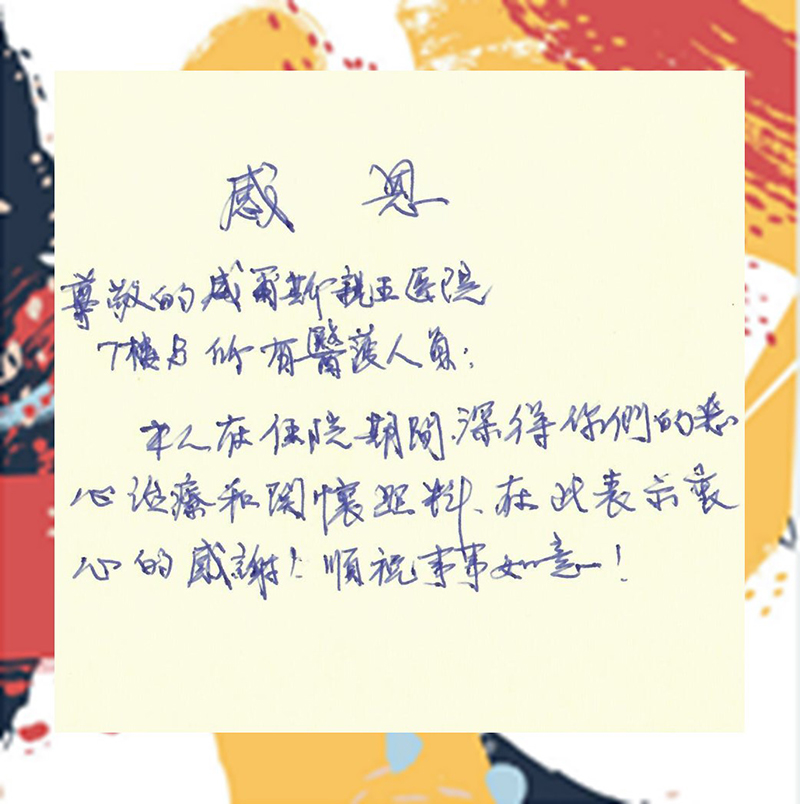 感 恩
尊敬的威爾斯親王医院
7樓B 所有醫護人員:
本人在住院期間,深得你們的悉
心治療和関懷照料、在此表示衷
心的感謝! 順祝事事如意!